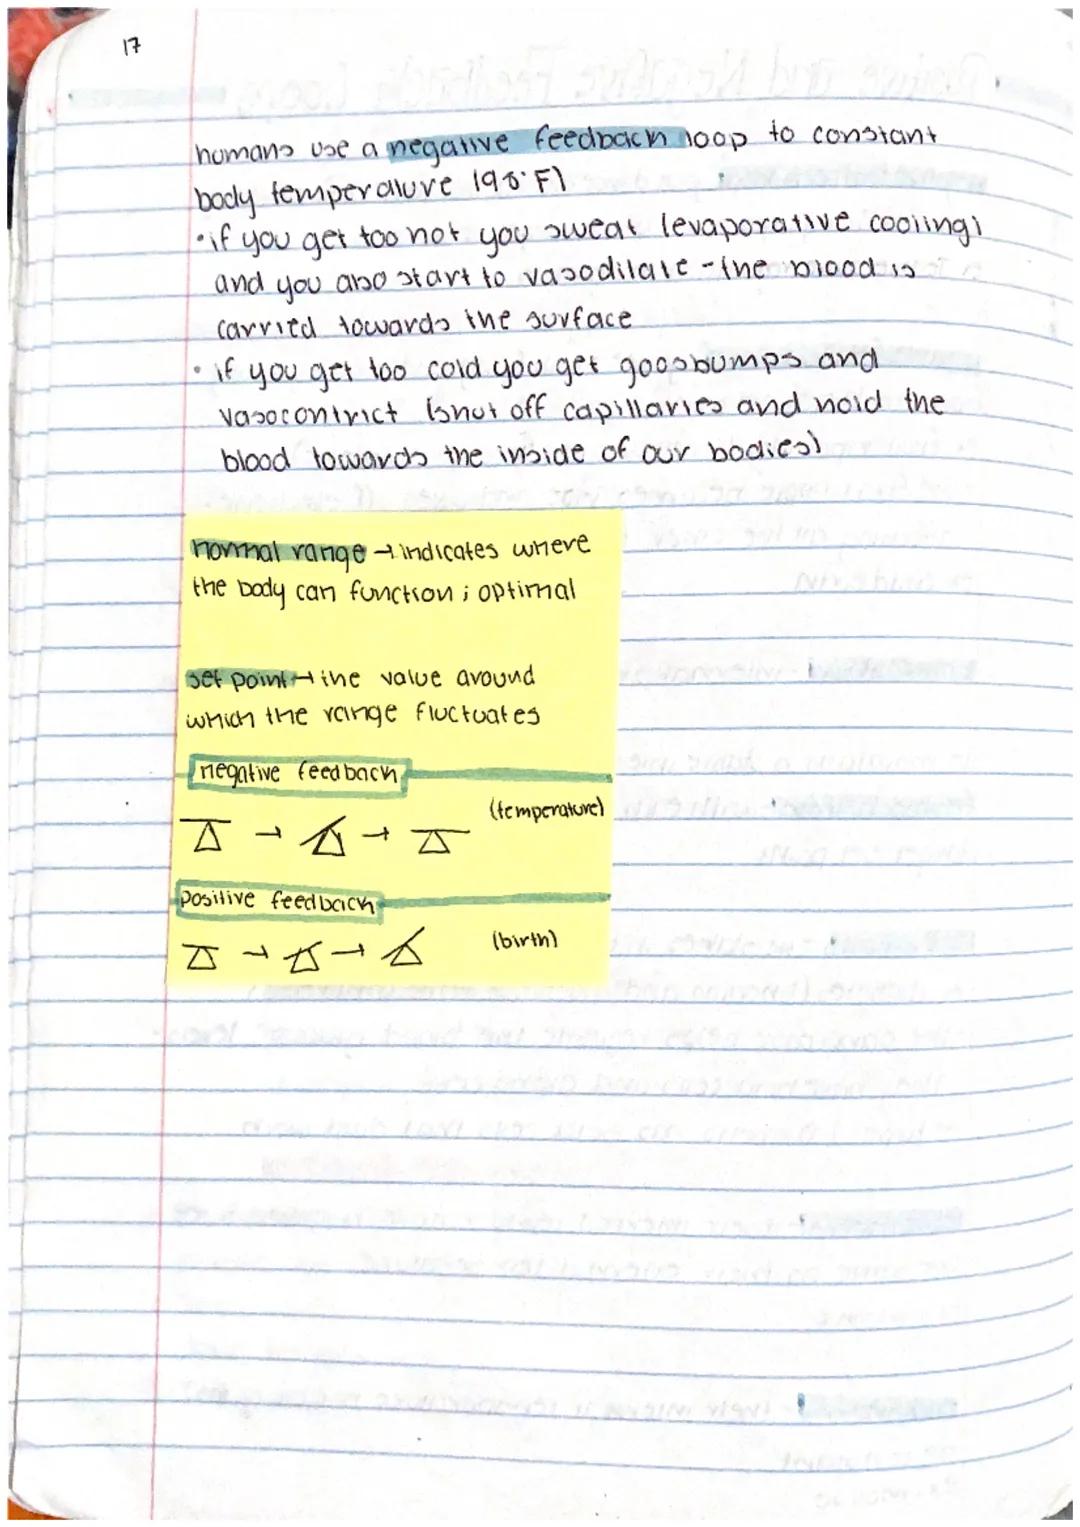 17
humans use a negative feedback loop to constant
body temperature (98°F)
•if you get too hot you sweat (evaporative cooling)
and you also start to vasodilate - the blood is
carried towards the surface
• if you get too cold you get goosbumps and
vasocontrict (shut off capillaries and hold the
blood towards the inside of our bodies)
normal range → indicates where
the body can function ; optimal
set point → the value around
which the range fluctuates
negative feedback
(temperature)
positive feedback
(birth)